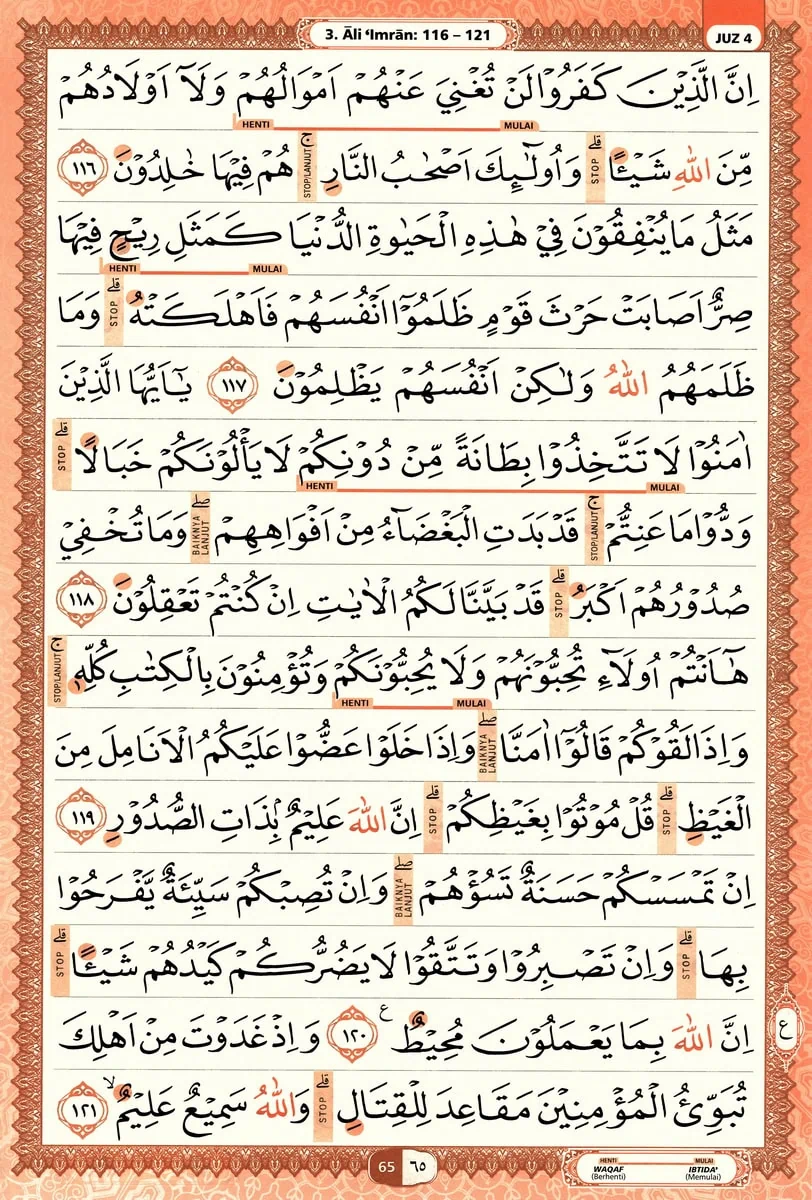 3. Āli ‘Imrān: 116 – 121
JUZ 4
اِنَّ الَّذِيْنَ كَفَرُوْا لَنْ تُغْنِيَ عَنْهُمْ اَمْوَالُهُمْ وَلَآ اَوْلَادُهُمْ
HENTI MULAI
مِّنَ اللّٰهِ شَيْـًٔا ۗ STOP وَاُولٰۤىِٕكَ اَصْحٰبُ النَّارِ ۚ STOP/LANJUT هُمْ فِيْهَا خٰلِدُوْنَ ١١٦
مَثَلُ مَا يُنْفِقُوْنَ فِيْ هٰذِهِ الْحَيٰوةِ الدُّنْيَا كَمَثَلِ رِيْحٍ فِيْهَا
HENTI MULAI
صِرٌّ اَصَابَتْ حَرْثَ قَوْمٍ ظَلَمُوْٓا اَنْفُسَهُمْ فَاَهْلَكَتْهُ ۗ STOP وَمَا
ظَلَمَهُمُ اللّٰهُ وَلٰكِنْ اَنْفُسَهُمْ يَظْلِمُوْنَ ١١٧ يٰٓاَيُّهَا الَّذِيْنَ
اٰمَنُوْا لَا تَتَّخِذُوْا بِطَانَةً مِّنْ دُوْنِكُمْ لَا يَأْلُوْنَكُمْ خَبَالًا ۗ STOP
HENTI MULAI
وَدُّوْا مَا عَنِتُّمْ ۚ STOP/LANJUT قَدْ بَدَتِ الْبَغْضَاۤءُ مِنْ اَفْوَاهِهِمْ ۖ BAIKNYA LANJUT وَمَا تُخْفِيْ
صُدُوْرُهُمْ اَكْبَرُ ۗ STOP قَدْ بَيَّنَّا لَكُمُ الْاٰيٰتِ اِنْ كُنْتُمْ تَعْقِلُوْنَ ١١٨
هٰٓاَنْتُمْ اُولَاۤءِ تُحِبُّوْنَهُمْ وَلَا يُحِبُّوْنَكُمْ وَتُؤْمِنُوْنَ بِالْكِتٰبِ كُلِّهٖ ۚ STOP/LANJUT
HENTI MULAI
وَاِذَا لَقُوْكُمْ قَالُوْٓا اٰمَنَّا ۖ BAIKNYA LANJUT وَاِذَا خَلَوْا عَضُّوْا عَلَيْكُمُ الْاَنَامِلَ مِنَ
الْغَيْظِ ۗ STOP قُلْ مُوْتُوْا بِغَيْظِكُمْ ۗ STOP اِنَّ اللّٰهَ عَلِيْمٌ ۢبِذَاتِ الصُّدُوْرِ ١١٩
اِنْ تَمْسَسْكُمْ حَسَنَةٌ تَسُؤْهُمْ ۖ BAIKNYA LANJUT وَاِنْ تُصِبْكُمْ سَيِّئَةٌ يَّفْرَحُوْا
بِهَا ۗ STOP وَاِنْ تَصْبِرُوْا وَتَتَّقُوْا لَا يَضُرُّكُمْ كَيْدُهُمْ شَيْـًٔا ۗ STOP
اِنَّ اللّٰهَ بِمَا يَعْمَلُوْنَ مُحِيْطٌ ࣖ ١٢٠ وَاِذْ غَدَوْتَ مِنْ اَهْلِكَ
ع
تُبَوِّئُ الْمُؤْمِنِيْنَ مَقَاعِدَ لِلْقِتَالِ ۗ STOP وَاللّٰهُ سَمِيْعٌ عَلِيْمٌ ۙ ١٢١
65 ٦٥
HENTI MULAI
WAQAF IBTIDA'
(Berhenti) (Memulai)